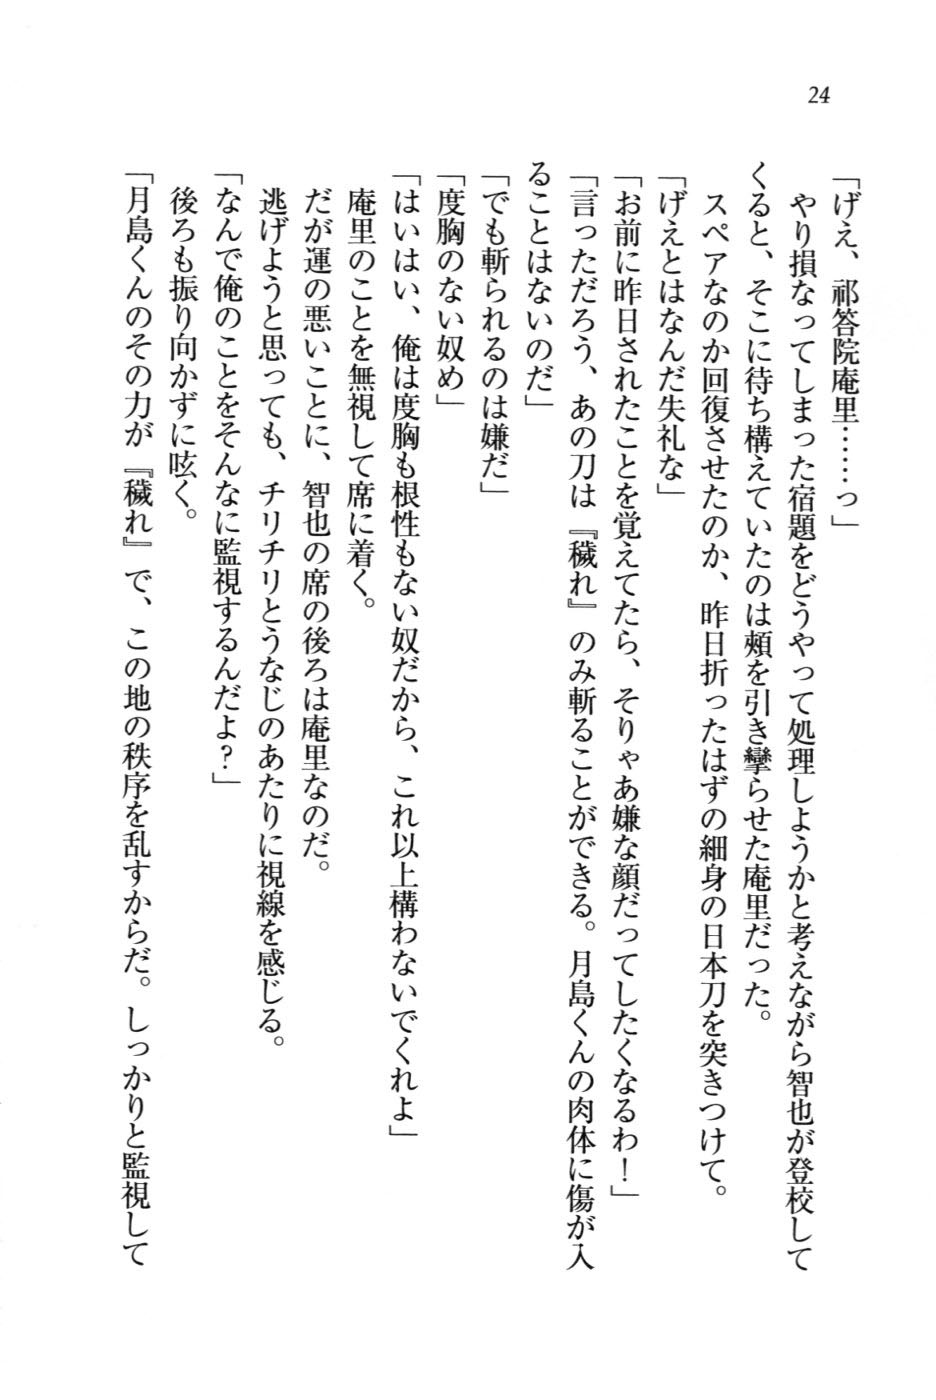 24
「げえ、祁答院庵里……っ」
やり損なってしまった宿題をどうやって処理しようかと考えながら智也が登校して
くると、そこに待ち構えていたのは頬を引き攣らせた庵里だった。
スペアなのか回復させたのか、昨日折ったはずの細身の日本刀を突きつけて。
「げえとはなんだ失礼な」
「お前に昨日されたことを覚えてたら、そりゃあ嫌な顔だってしたくなるわ！」
「言っただろう、あの刀は『穢れ』のみ斬ることができる。月島くんの肉体に傷が入
ることはないのだ」
「でも斬られるのは嫌だ」
「度胸のない奴め」
「はいはい、俺は度胸も根性もない奴だから、これ以上構わないでくれよ」
庵里のことを無視して席に着く。
だが運の悪いことに、智也の席の後ろは庵里なのだ。
逃げようと思っても、チリチリとうなじのあたりに視線を感じる。
「なんで俺のことをそんなに監視するんだよ？」
後ろも振り向かずに呟く。
「月島くんのその力が『穢れ』で、この地の秩序を乱すからだ。しっかりと監視して